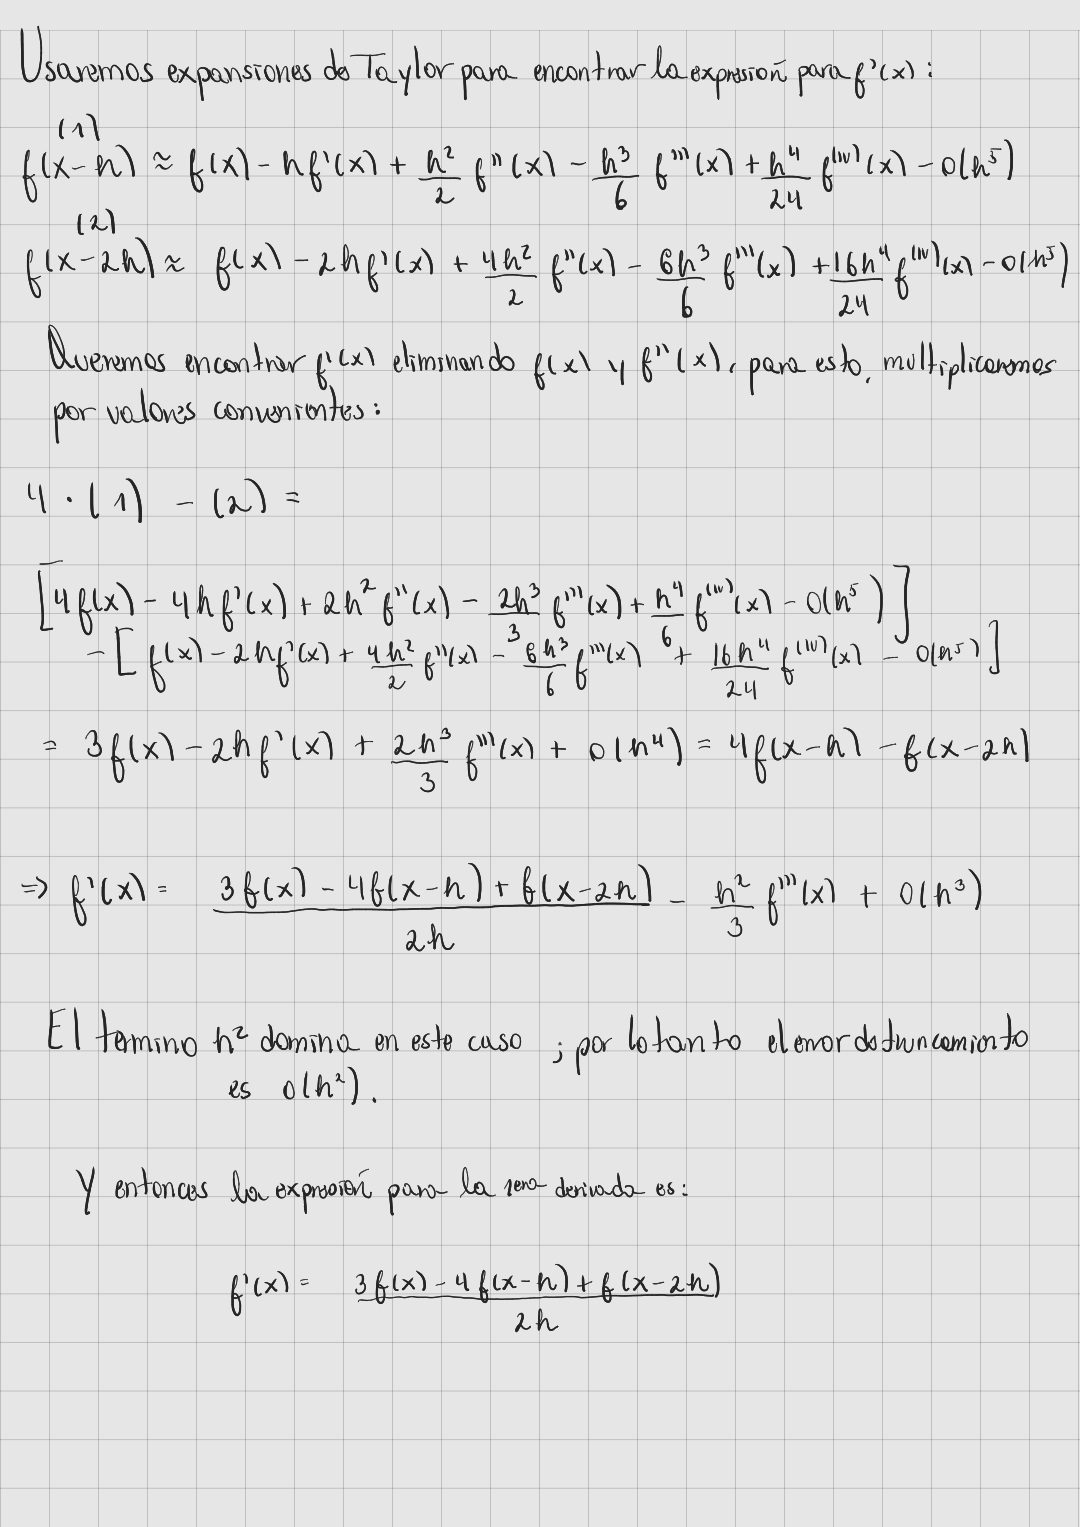 Usaremos expansiones de Taylor para encontrar la expresión para f'(x):
(1)
f(x-h) ≈ f(x) - hf'(x) + h²/2 f''(x) - h³/6 f'''(x) + h⁴/24 f⁽ᴵⱽ⁾(x) - O(h⁵)
(2)
f(x-2h) ≈ f(x) - 2hf'(x) + 4h²/2 f''(x) - 6h³/6 f'''(x) + 16h⁴/24 f⁽ᴵⱽ⁾(x) - O(h⁵)
Queremos encontrar f'(x) eliminando f(x) y f''(x), para esto, multiplicaremos
por valores convenientes:
4 · (1) - (2) =
[4f(x) - 4hf'(x) + 2h² f''(x) - 2h³/3 f'''(x) + h⁴/6 f⁽ᴵⱽ⁾(x) - O(h⁵)]
- [f(x) - 2hf'(x) + 4h²/2 f''(x) - 6h³/6 f'''(x) + 16h⁴/24 f⁽ᴵⱽ⁾(x) - O(h⁵)]
= 3f(x) - 2hf'(x) + 2h³/3 f'''(x) + O(h⁴) = 4f(x-h) - f(x-2h)
=> f'(x) = 3f(x) - 4f(x-h) + f(x-2h)/2h - h²/3 f'''(x) + O(h³)
El termino h² domina en este caso ; por lo tanto el error de truncamiento
es O(h²).
Y entonces la expresión para la 1era derivada es:
f'(x) = 3f(x) - 4f(x-h) + f(x-2h)/2h